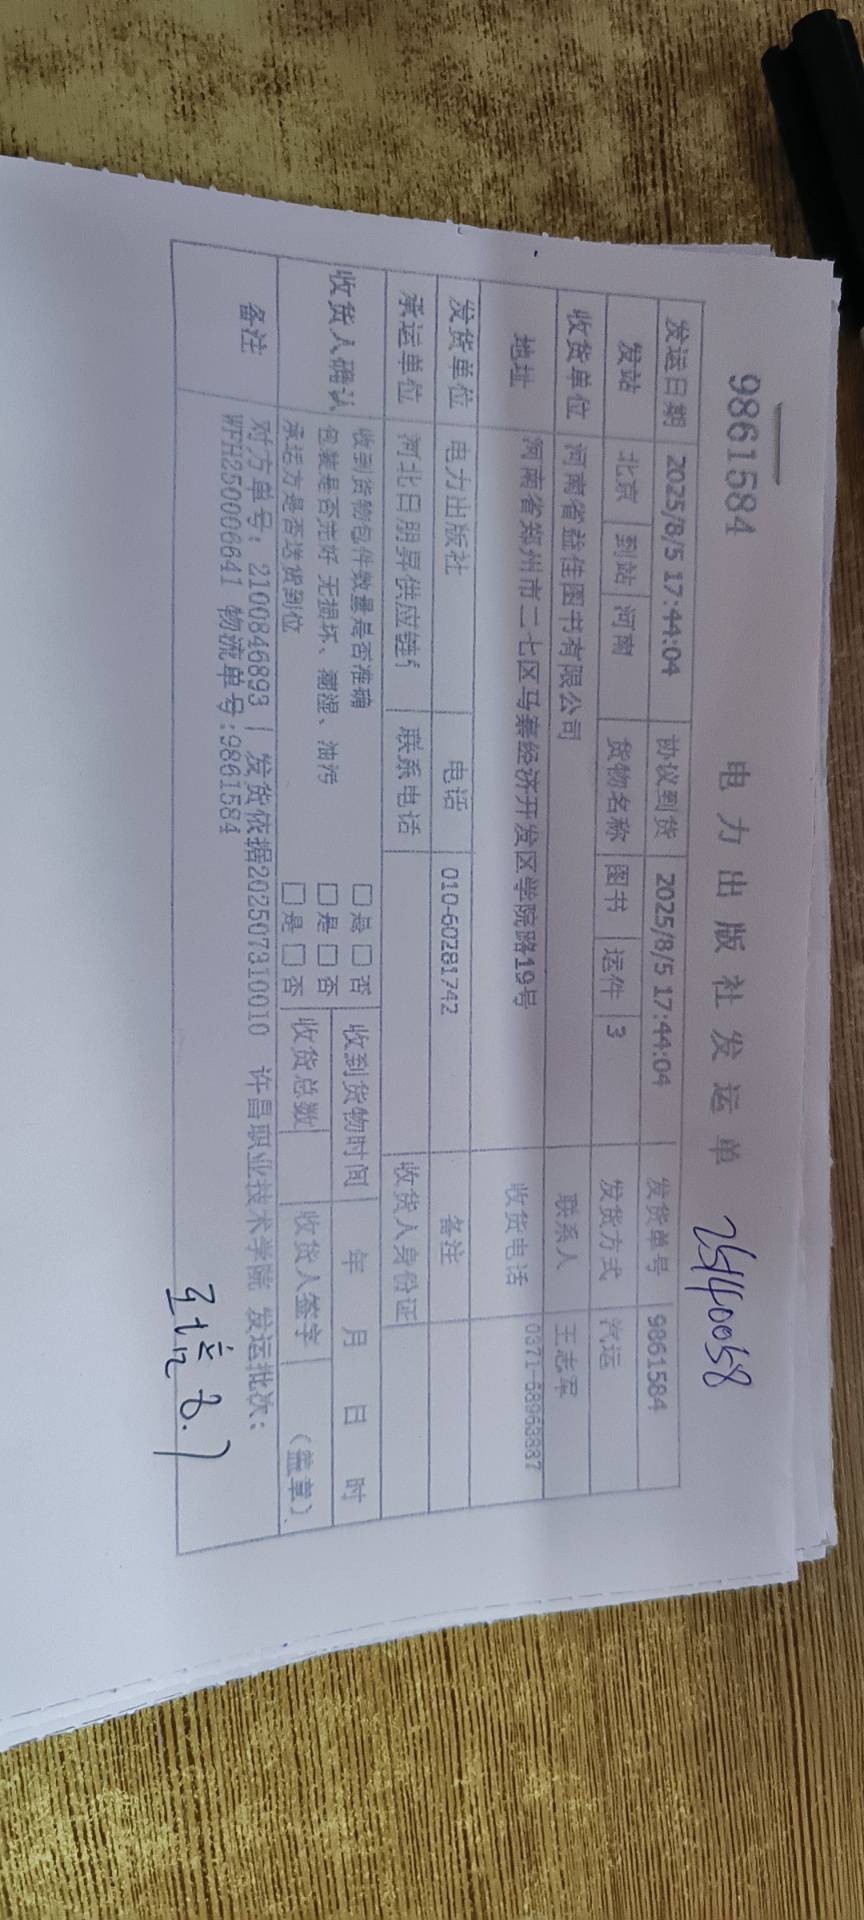 9861584
电力出版社发运单 25140058
发运日期 2025/8/5 17:44:04 协议到货 2025/8/5 17:44:04 发货单号 9861584
发站 北京 到站 河南 货物名称 图书 运件 3 发货方式 汽运
收货单位 河南省益佳图书有限公司 联系人 王志军
地址 河南省郑州市二七区马寨经济开发区学院路19号 收货电话 0371-68963837
发货单位 电力出版社 电话 010-60281742 备注
承运单位 河北日朋昇供应链 联系电话 收货人身份证
收货人确认 收到货物包件数量是否准确 □是□否 收到货物时间 年 月 日 时
包装是否完好 无损坏、潮湿、油污 □是□否
承运方是否送货到位 □是□否 收货总数 收货人签字 (盖章)
备注 对方单号: 2100846893 | 发货依据202507310010 许昌职业技术学院 发运批次:
WFH250006641 物流单号:9861584
8.7